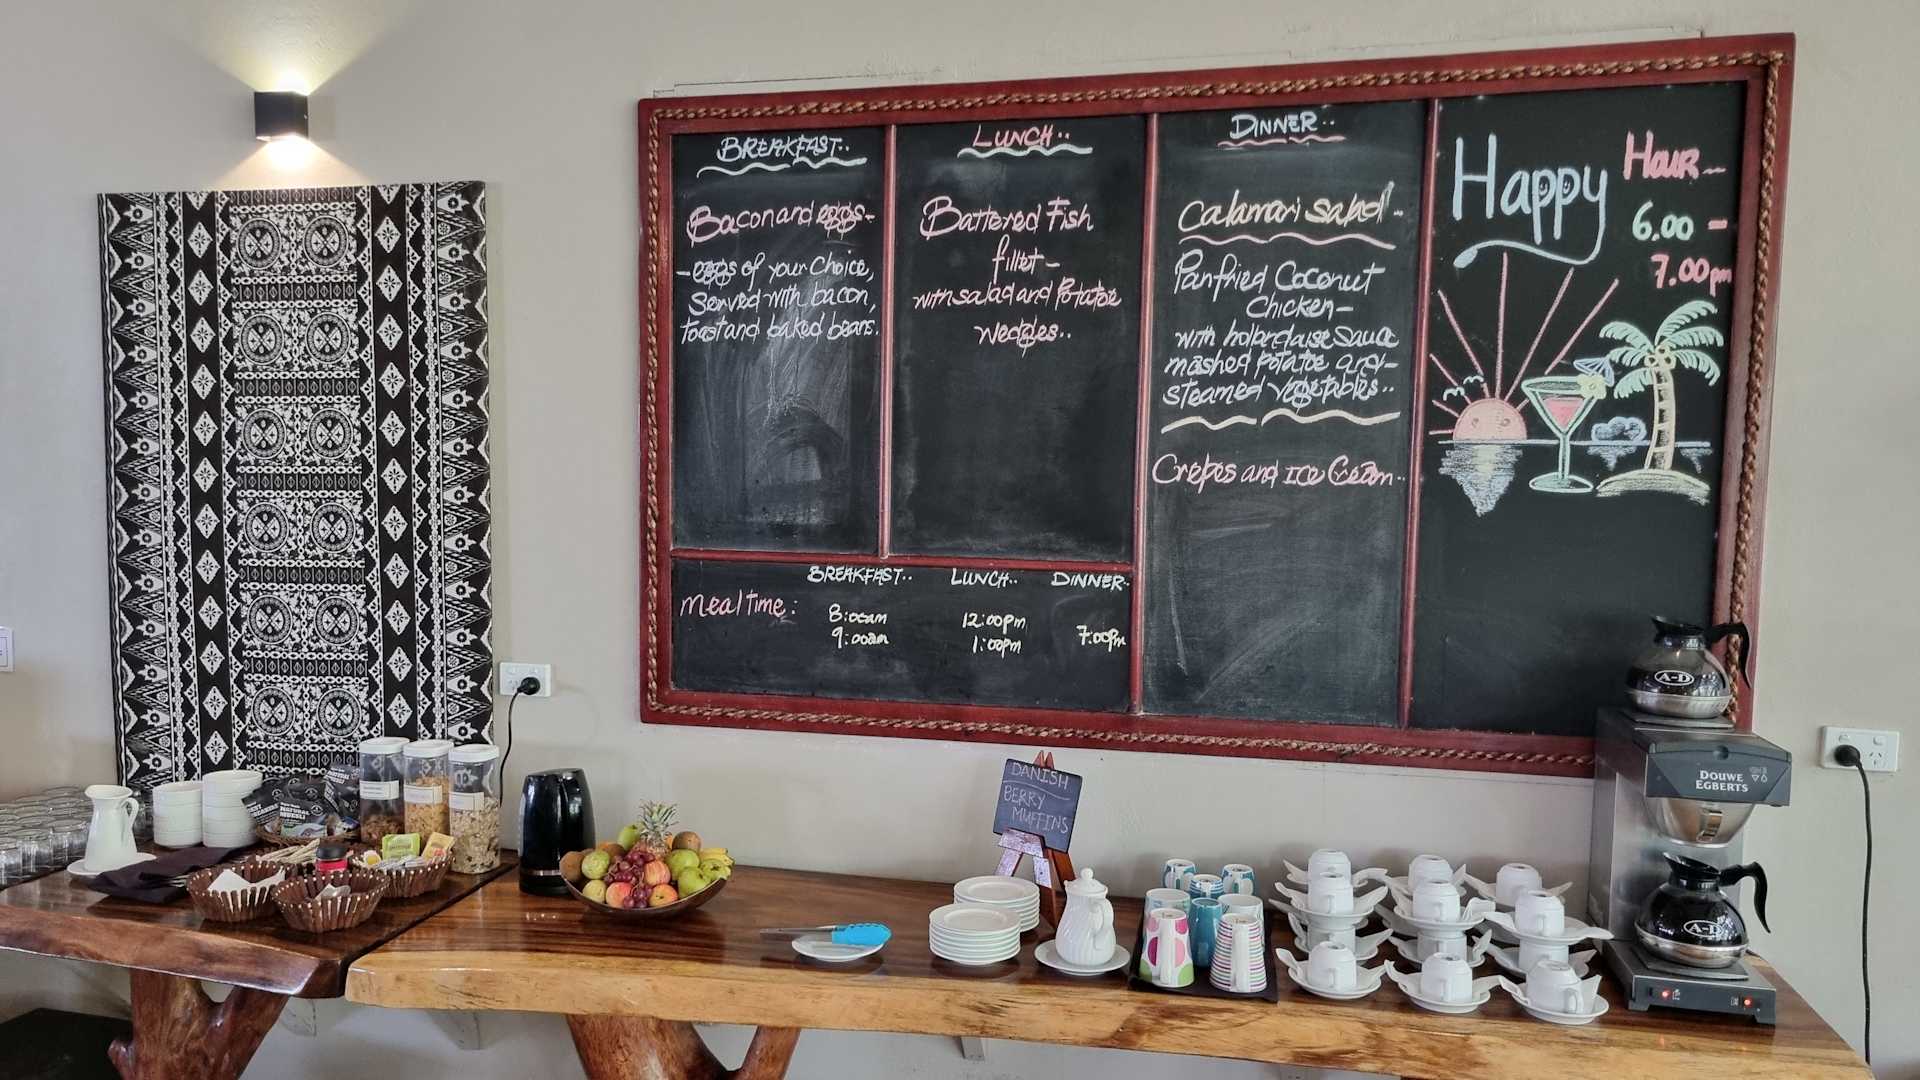 BREAKFAST..
Bacon and eggs-
- eggs of your Choice,
Served with bacon,
toast and baked beans.
LUNCH..
Battered Fish
fillet -
with salad and Potatoe
wedges..
DINNER..
Calamari salad -
Panfried Coconut
Chicken -
with holandaise Sauce
mashed potatoe and -
steamed vegetables..
Crepes and ICE Cream..
Happy
Hour...
6.00 -
7.00pm
BREAKFAST.. LUNCH.. DINNER..
Meal time:
8:00am 12:00pm
9:00am 1:00pm 7:00pm
DANISH
BERRY
MUFFINS
NATURAL
MUESLI
A-D
DOUWE
EGBERTS
A-D